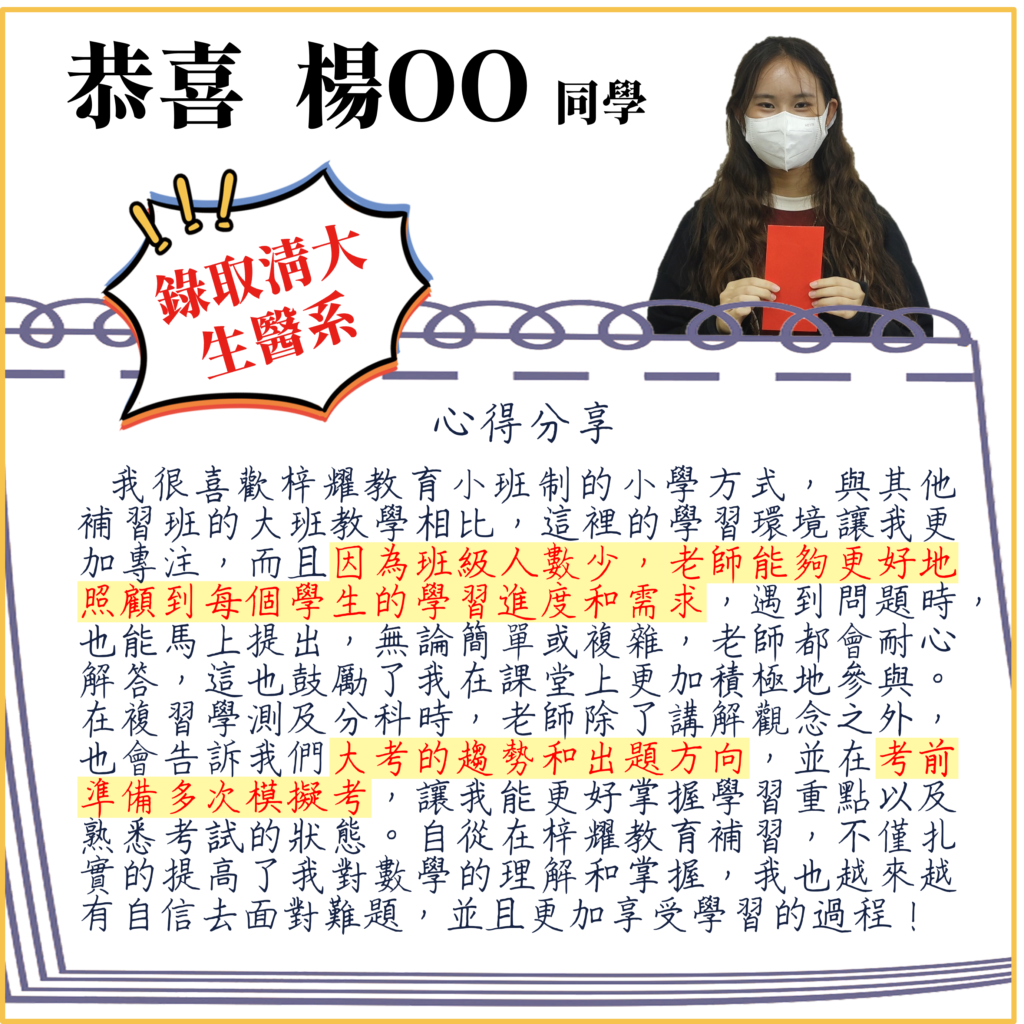 恭喜 楊OO 同學
錄取清大
生醫系
心得分享
我很喜歡梓耀教育小班制的小學方式，與其他
補習班的大班教學相比，這裡的學習環境讓我更
加專注，而且因為班級人數少，老師能夠更好地
照顧到每個學生的學習進度和需求，遇到問題時，
也能馬上提出，無論簡單或複雜，老師都會耐心
解答，這也鼓勵了我在課堂上更加積極地參與。
在複習學測及分科時，老師除了講解觀念之外，
也會告訴我們大考的趨勢和出題方向，並在考前
準備多次模擬考，讓我能更好掌握學習重點以及
熟悉考試的狀態。自從在梓耀教育補習，不僅扎
實的提高了我對數學的理解和掌握，我也越來越
有自信去面對難題，並且更加享受學習的過程！